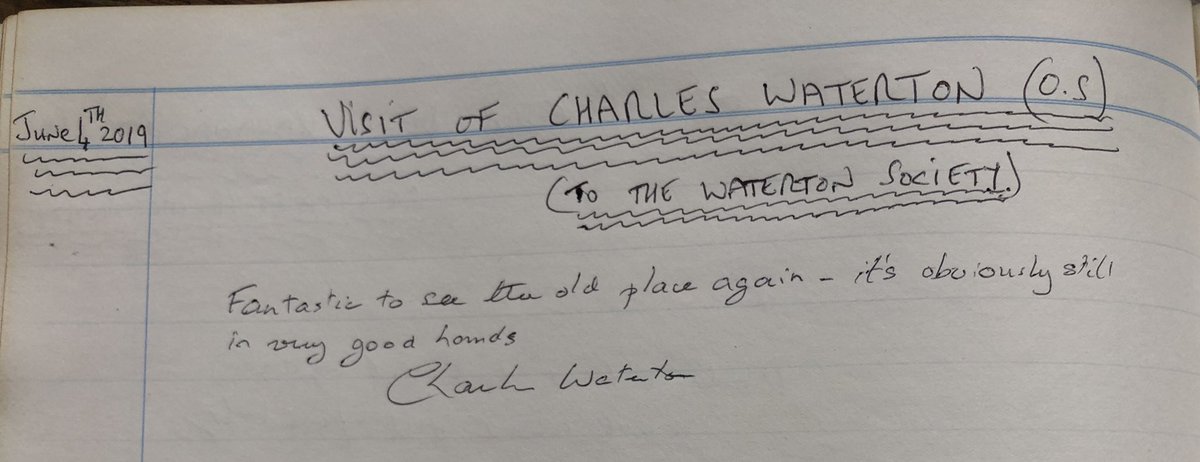 June 4TH 2019
VISIT OF CHARLES WATERTON (O.S)
(TO THE WATERTON SOCIETY.)
Fantastic to see the old place again - it's obviously still
in very good hands
Charles Waterton